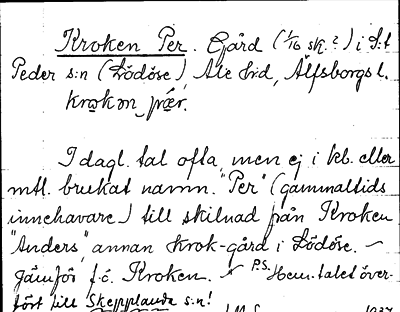 Kroken Per. Gård (1/16 sk.?) i S:t
Peder s:n (Lödöse), Ale hd, Älfsborgs l.
krǫkǝn pǽr.
I dagl. tal ofta, men ej i kb. eller
mtl. brukat namn. "Per" (gammaltids
innehavare) till skilnad från Kroken
"Anders", annan Krok-gård i Lödöse. –
Jämför f.ö. Kroken. – P.S. Hem.talet över-
fört till Skepplanda s:n!
1937